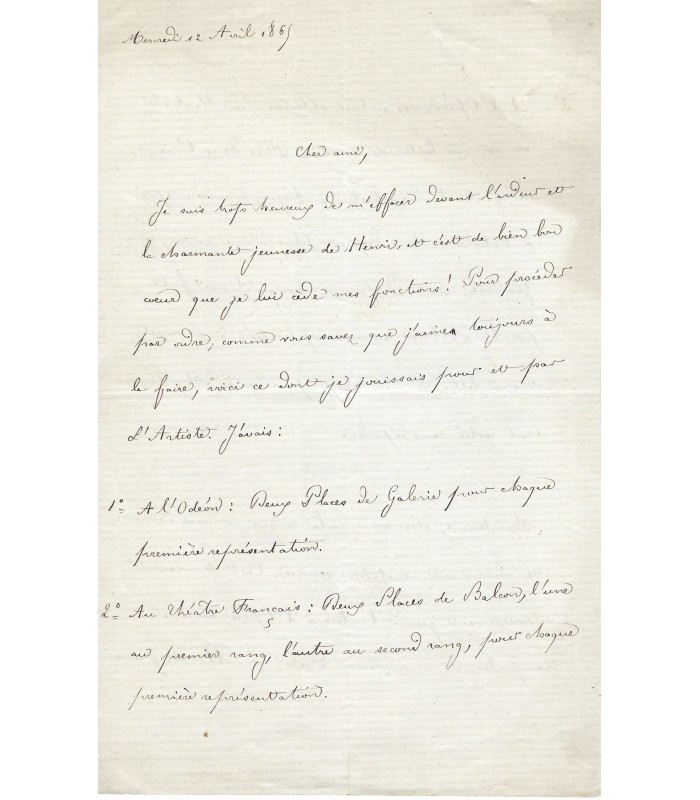 Mercredi 12 Avril 1865
Cher ami,
Je suis trop heureux de m'effacer devant l'ardeur et
la charmante jeunesse de Henri, et c'est de bien bon
cœur que je lui cède mes fonctions! Pour procéder
par ordre, comme vous savez que j'aime toujours à
le faire, voici ce dont je jouissais pour et par
L'Artiste. J'avais:
1º A l'Odéon: Deux Places de Galerie pour chaque
première représentation.
2º Au Théâtre Français: Deux Places de Balcon, l'une
au premier rang, l'autre au second rang, pour chaque
première représentation.